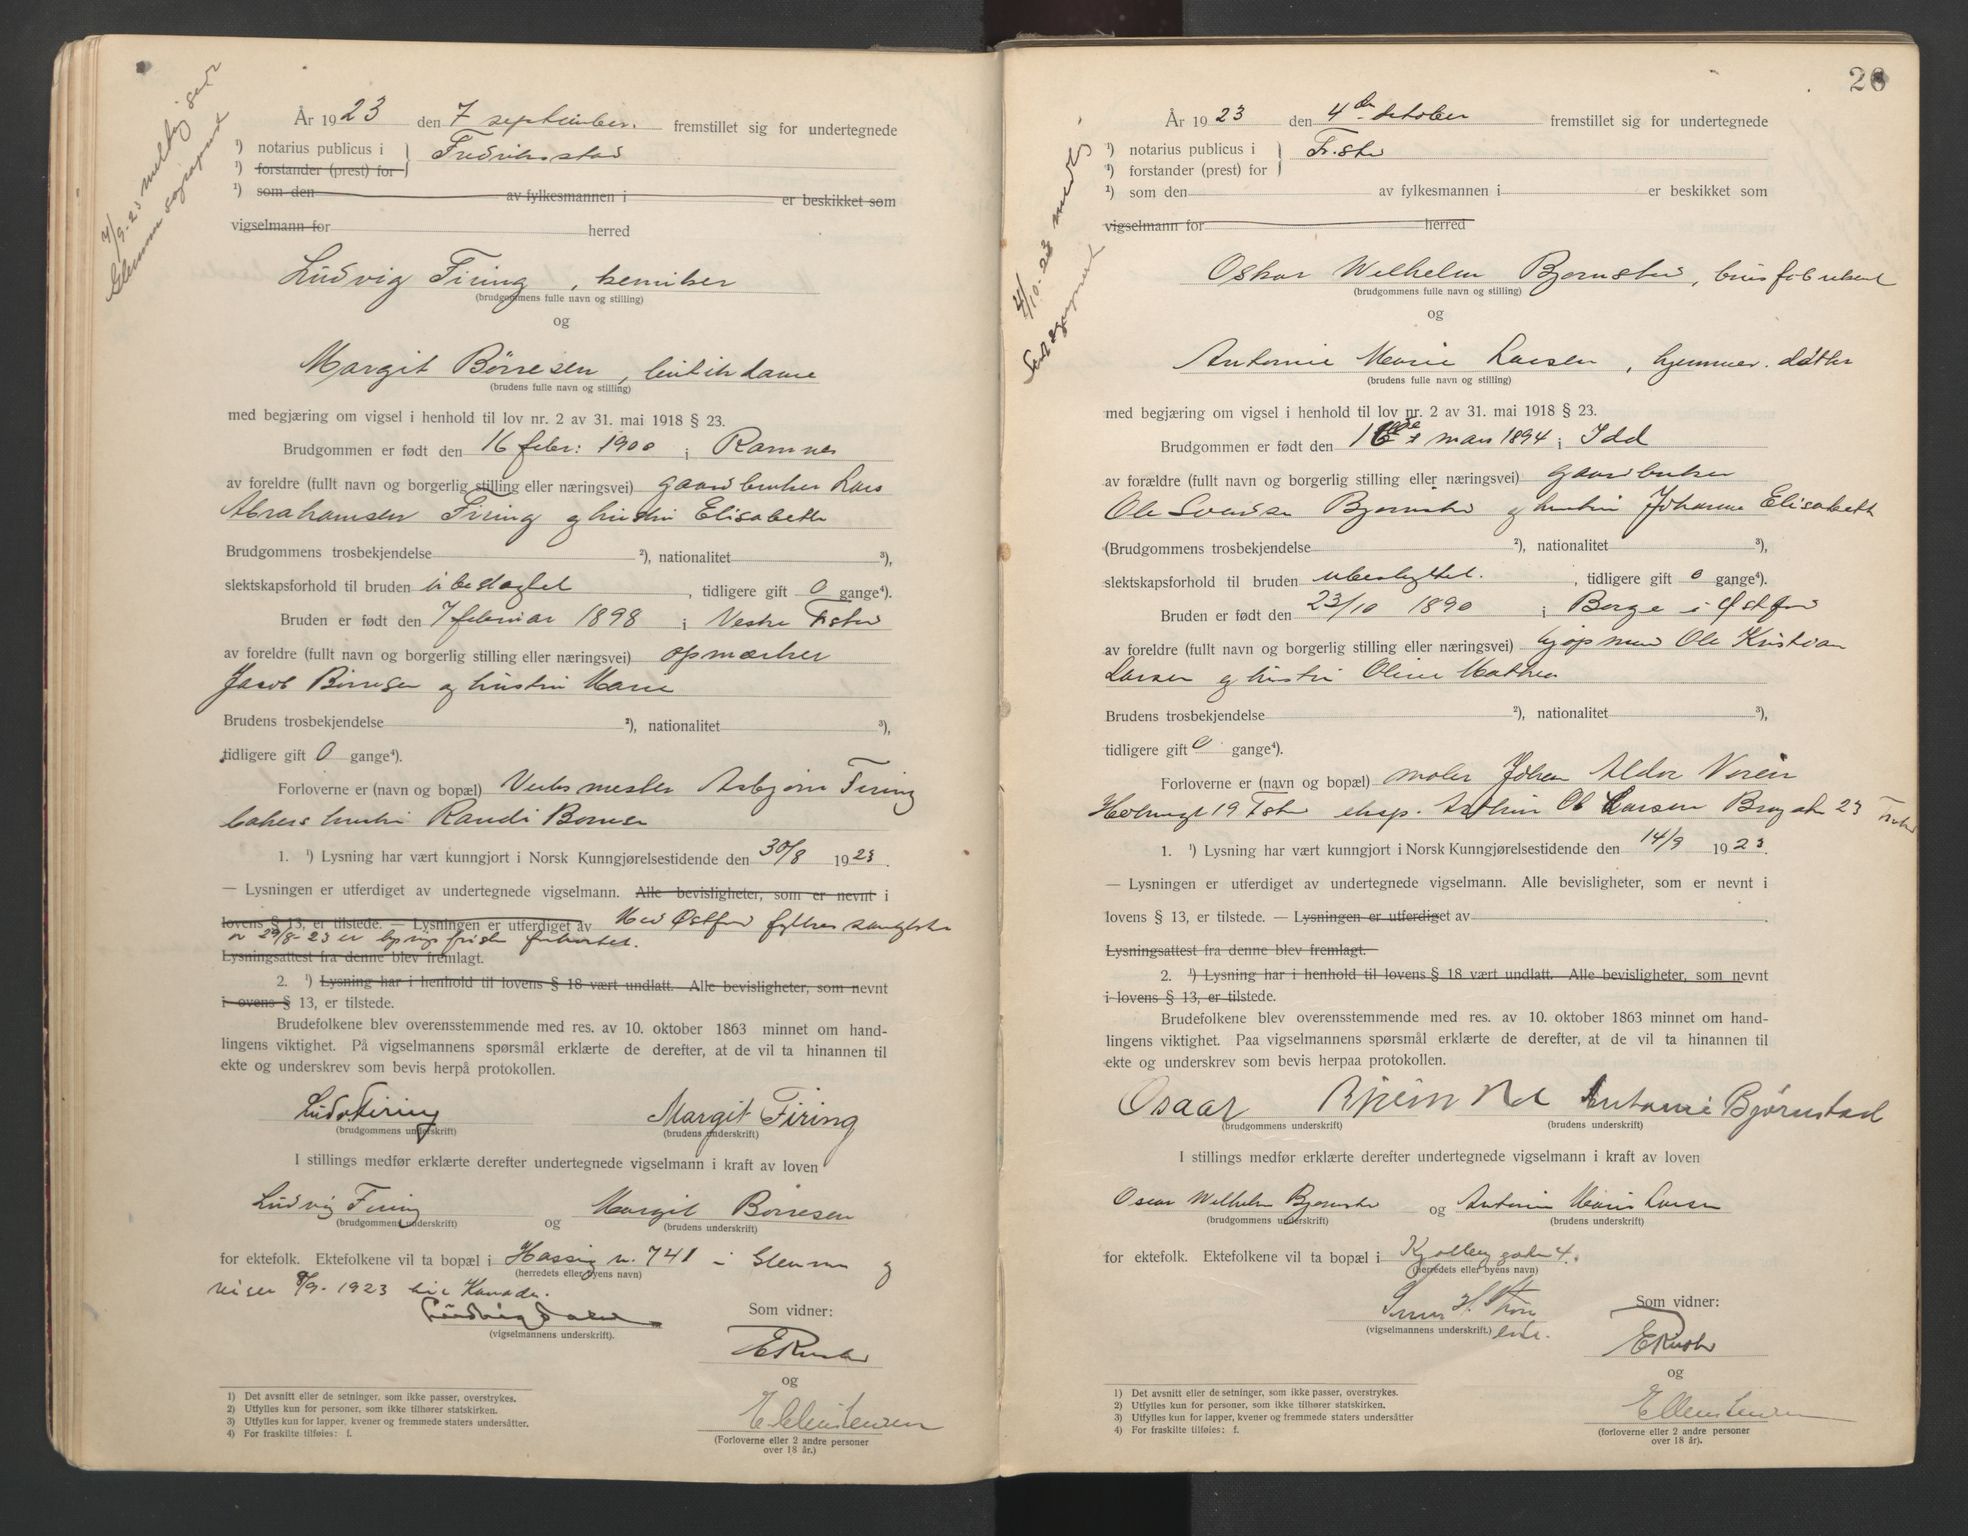 7/9-23 melding sendt
Glemmen sogneprest
År 1923 den 7 september. fremstillet sig for undertegnede
¹) notarius publicus i } Fredrikstad
¹) forstander (prest) for
¹) som den av fylkesmannen i er beskikket som
vigselmann for herred
Ludvig Firing, kemiker
(brudgommens fulle navn og stilling)
og
Margit Børresen,
(brudens fulle navn og stilling)
med begjæring om vigsel i henhold til lov nr. 2 av 31. mai 1918 § 23.
Brudgommen er født den 16 febr: 1900 i Ramnes
av foreldre (fullt navn og borgerlig stilling eller næringsvei) gaardbruker Lars
Abrahamsen Firing og hustru Elisabeth
Brudgommens trosbekjendelse ²), nationalitet ³),
slektskapsforhold til bruden ubeslagtet, tidligere gift 0 gange⁴).
Bruden er født den 7 februar 1898 i Vestre F.stad
av foreldre (fullt navn og borgerlig stilling eller næringsvei) opmærker
Jacob Børresen og hustru Marie
Brudens trosbekjendelse ²), nationalitet ³),
tidligere gift 0 gange⁴).
Forloverne er (navn og bopæl) Verksmester Asbjørn Firing
bakers hustru Randi Børresen
1. ¹) Lysning har vært kunngjort i Norsk Kunngjørelsestidende den 30/8 1923.
— Lysningen er utferdiget av undertegnede vigselmann. Alle bevisligheter, som er nevnt i
lovens § 13, er tilstede. — Lysningen er utferdiget av Med Østfold fylkes samtykke
av 29/8-23 er lysningsfristen forkortet.
Lysningsattest fra denne blev fremlagt.
2. ¹) Lysning har i henhold til lovens § 18 vært undlatt. Alle bevisligheter, som nevnt
i lovens § 13, er tilstede.
Brudefolkene blev overensstemmende med res. av 10. oktober 1863 minnet om hand-
lingens viktighet. På vigselmannens spørsmål erklærte de derefter, at de vil ta hinannen til
ekte og underskrev som bevis herpå protokollen.
Ludv Firing Margit Firing
(brudgommens underskrift) (brudens underskrift)
I stillings medfør erklærte derefter undertegnede vigselmann i kraft av loven
Ludvig Firing og Margit Børresen
(brudgommens underskrift) (brudens underskrift)
for ektefolk. Ektefolkene vil ta bopæl i Hassing n. 741 i Glemmen og
(herredets eller byens navn)
reiser 8/9-1923 til Kanada.
(vigselmannens underskrift).
Som vidner:
og
(Forloverne eller 2 andre personer
over 18 år.)
1) Det avsnitt eller de setninger, som ikke passer, overstrykes.
2) Utfylles kun for personer, som ikke tilhører statskirken.
3) Utfylles kun for lapper, kvener og fremmede staters undersåtter.
4) For fraskilte tilføies: f.
26
4/10-23 medd.
Sogneprest
År 1923 den 4de oktober fremstillet sig for undertegnede
¹) notarius publicus i } Fr.stad
¹) forstander (prest) for
¹) som den av fylkesmannen i er beskikket som
vigselmann for herred
Oskar Wilhelm Bjørnstad,
(brudgommens fulle navn og stilling)
og
Antonie Marie Larsen, hjemmev. datter
(brudens fulle navn og stilling)
med begjæring om vigsel i henhold til lov nr. 2 av 31. mai 1918 § 23.
Brudgommen er født den 16de mars 1894 i Idd
av forældre (fullt navn og borgerlig stilling eller næringsvei) gaardbruker
Ole Svendsen Bjørnstad og hustru Johanne Elisabeth
(Brudgommens trosbekjendelse ²), nationalitet ³),
slektskapsforhold til bruden ubeslegtet., tidligere gift 0 gange⁴).
Bruden er født den 23/10 1890 i Borge i Østfold
av foreldre (fullt navn og borgerlig stilling eller næringsvei) kjøpmand Ole Kristian
Larsen og hustru Oline Mathea
Brudens trosbekjendelse ²), nationalitet ³),
tidligere gift 0 gange⁴).
Forloverne er (navn og bopæl) maler Johan Aldor
19 F.stad eksp. Arthur Ob Larsen 23 F.stad
1. ¹) Lysning har vært kunngjort i Norsk Kunngjørelsestidende den 14/9 1923.
— Lysningen er utferdiget av undertegnede vigselmann. Alle bevisligheter, som er nevnt i
lovens § 13, er tilstede. — Lysningen er utferdiget av
Lysningsattest fra denne blev fremlagt.
2. ¹) Lysning har i henhold til lovens § 18 vært undlatt. Alle bevisligheter, som nevnt
i lovens § 13, er tilstede.
Brudefolkene blev overensstemmende med res. av 10. oktober 1863 minnet om hand-
lingens viktighet. Paa vigselmannens spørsmål erklærte de derefter, at de vil ta hinannen til
ekte og underskrev som bevis herpaa protokollen.
Oscar Antonie Bjørnstad
(brudgommens underskrift) (brudens underskrift)
I stillings medfør erklærte derefter undertegnede vigselmann i kraft av loven
Oscar Wilhelm Bjørnstad og Antonie Marie Larsen
(brudgommens underskrift) (brudens underskrift)
for ektefolk. Ektefolkene vil ta bopæl i Kjølberggaten 4.
(herredets eller byens navn)
(vigselmannens underskrift.)
Som vidner:
og
(forloverne eller 2 andre personer
over 18 år).
1) Det avsnitt eller de setninger, som ikke passer, overstrykes.
2) Utfylles kun for personer, som ikke tilhører statskirken.
3) Utfylles kun for lapper, kvener og fremmede staters undersåtter
4) For fraskilte tilføies: f.